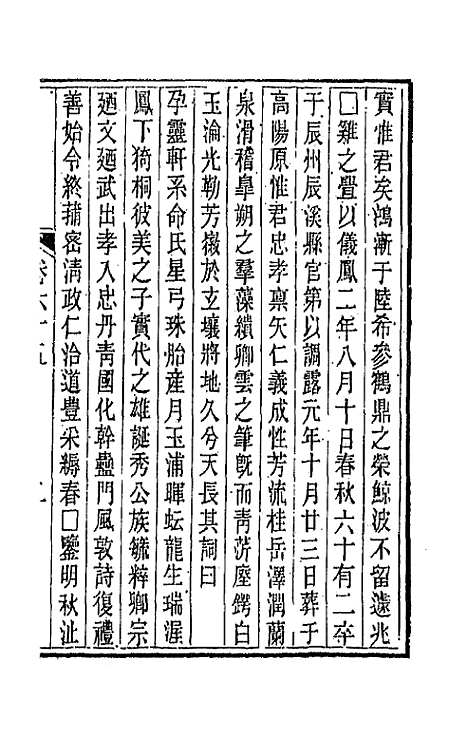 實惟君矣鴻漸于陸希參鶴鼎之榮鯨波不留遠兆
□雞之疊以儀鳳二年八月十日春秋六十有二卒
于辰州辰溪縣官第以調露元年十月廿三日葬于
高陽原惟君忠孝稟矢仁義成性芳流桂岳澤潤蘭
泉滑稽皐朔之羣藻繢卿雲之筆旣而靑萍壓鍔白
玉淪光勒芳徽於玄壤將地久兮天長其詞曰
孕靈軒系命氏星弓珠胎産月玉浦暉虹龍生瑞渥
鳳下猗桐彼美之子實代之雄誕秀公族毓粹卿宗
廼文廼武出孝入忠丹靑國化幹蠱門風敦詩復禮
善始令終蒲密淸政仁洽道豊采縟春□鑒明秋沚
卷六十五